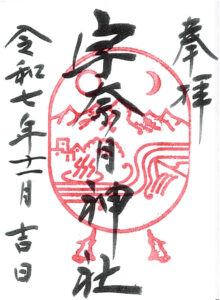 奉拝
宇奈月神社
令和七年十一月吉日